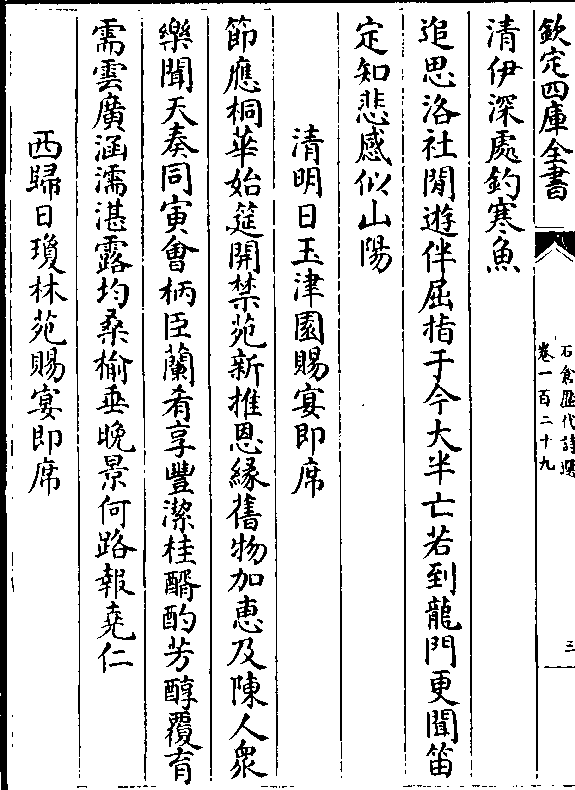 欽定四庫全書
石倉歷代詩選
卷一百二十九
三
清伊深處釣寒魚
追思洛社閒遊伴屈指于今大半亡若到龍門更聞笛
定知悲感似山陽
清明日玉津園賜宴即席
節應桐華始筵開禁苑新推恩緣舊物加惠及陳人衆
樂聞天奏同寅會柄臣蘭肴享豐潔桂醑酌芳醇覆育
需雲廣涵濡湛露均桑榆垂晚景何路報堯仁
西歸日瓊林苑賜宴即席